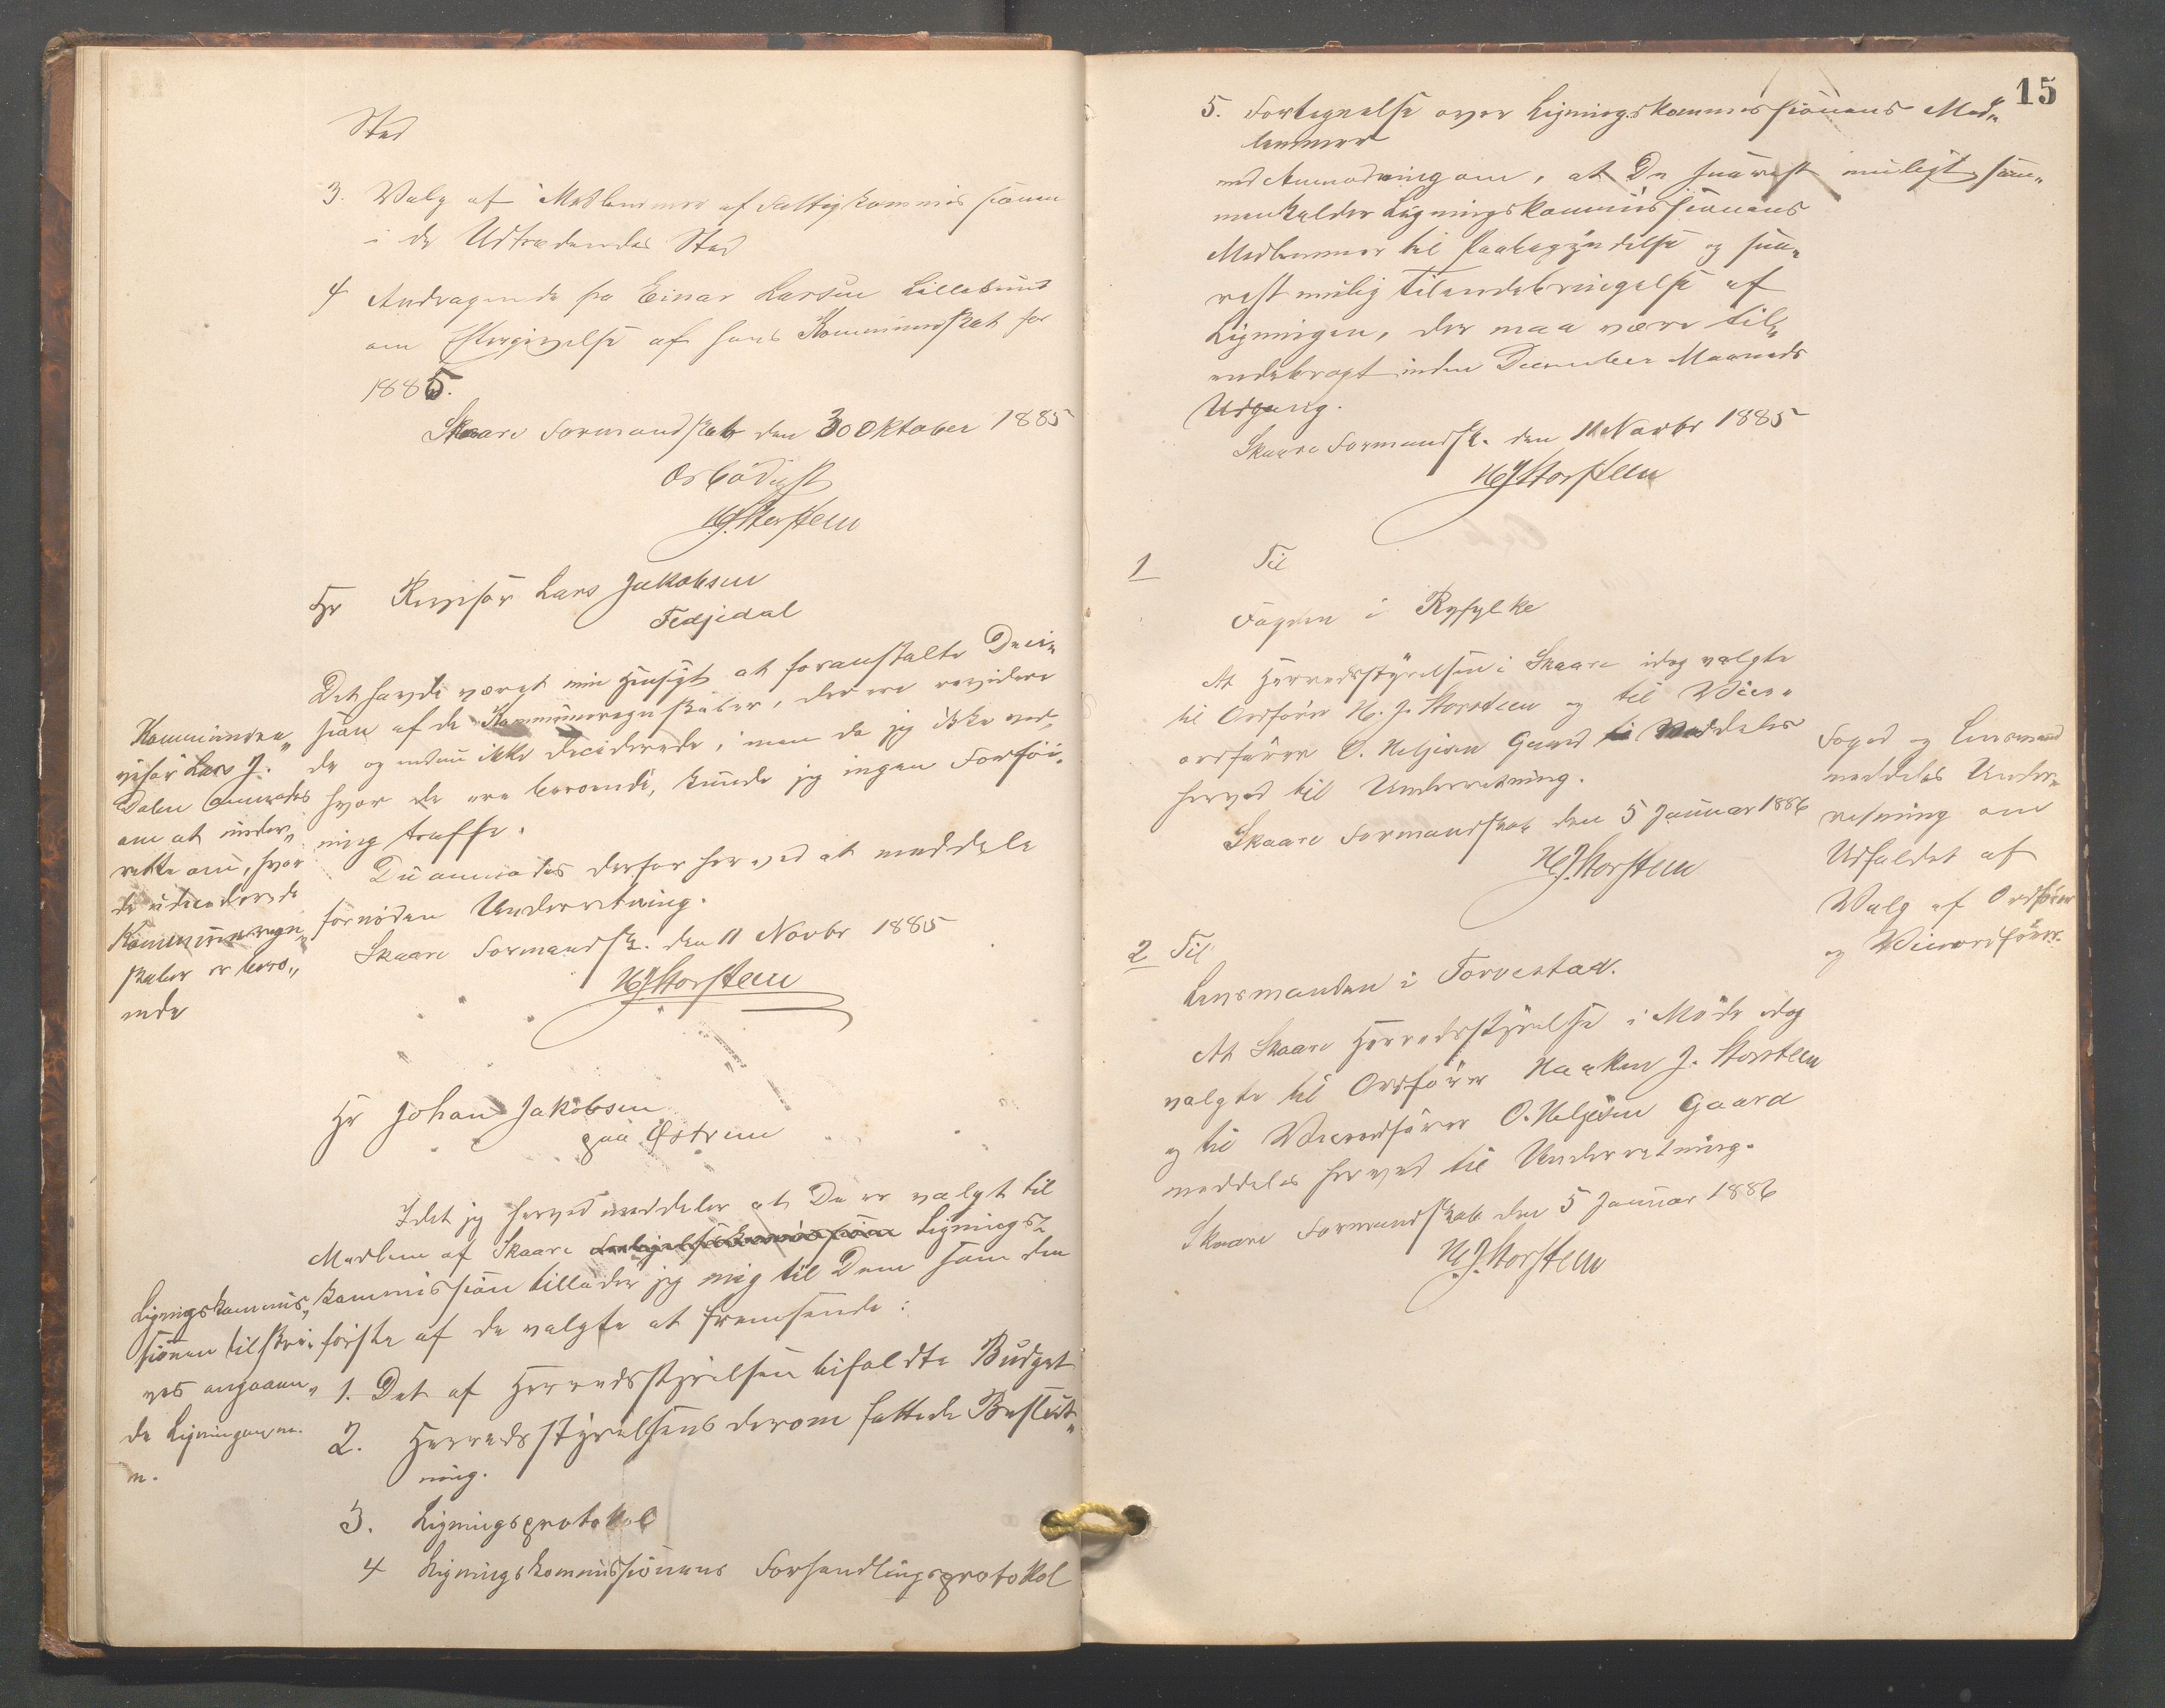 Sted
3. Valg af Medlemmer af Fattigkommissionen
i de Udtrædendes Sted
4 Andragende fra Einar Larsen Lillesund
om Eftergivelse af hans Kommuneskat for
1885.
Skaare Formandskab den 30 Oktober 1885
Ærbødigst
H J Storsteen
Hr Revisor Lars Jakobsen
Fedjedal
Det havde været min Hensigt at foranstalte Deci„
sion af de Kommuneregnskaber, der ere revidere
de og endnu ikke deciderede, men da jeg ikke ved,
hvor de ere beroende, kunde jeg ingen Forföi„
ning træffe.
De anmodes derfor herved at meddele
fornöden Underretning.
Skaare Formandsk. den 11 Novbr 1885
H J Storsteen
Kommunere„
visor Lars J.
Dalen anmodes
om at under„
rette om, hvor
de udeciderede
Kommuneregn„
skaber er bero„
ende
Hr Johan Jakobsen
paa Östrem
Idet jeg herved meddeler at De er valgt til
Medlem af Skaare Lignings„
kommission tillader jeg mig til Dem som den
förste af de valgte at fremsende:
1. Det af Herredsstyrelsen bifaldte Budget
2. Herredsstyrelsens derom fattede Beslut„
ning.
3. Ligningsprotokol
4 Ligningskommissionens Forhandlingsprotokol
Ligningskommis„
sionen tilskri„
ves angaaen„
de Ligningen m.
m.
15
5. Fortegnelse over Ligningskommissionens Med„
lemmer
med Anmodning om, at De snarest muligt sam„
menkalder Ligningskommissionens
Medlemmer til Paabegyndelse og sna„
rest mulig Tilendebringelse af
Ligningen, der maa være til„
endebragt inden December Maaneds
Udgang.
Skaare Formandsk. den 11 Novbr 1885
H J Storsteen
1 Til
Fogden i Ryfylke
At Herredsstyrelsen i Skaare idag valgte
til Ordförer H. J. Storsteen og til Vice„
ordförer O. Heljesen Gaard meddeles
herved til Underretning.
Skaare Formandskab den 5 Januar 1886
H J. Storsteen
Foged og Lensmand
meddeles Under„
retning om
Udfaldet af
Valg af Ordförer
og Viceordförer.
2 Til
Lensmanden i Torvestad.
At Skaare Herredsstyrelse i Möde idag
valgte til Ordförer Haaken J. Storsteen
og til Viceordförer O. Heljesen Gaard
meddeles herved til Underretning.
Skaare Formandskab den 5 Januar 1886
H. J. Storsteen